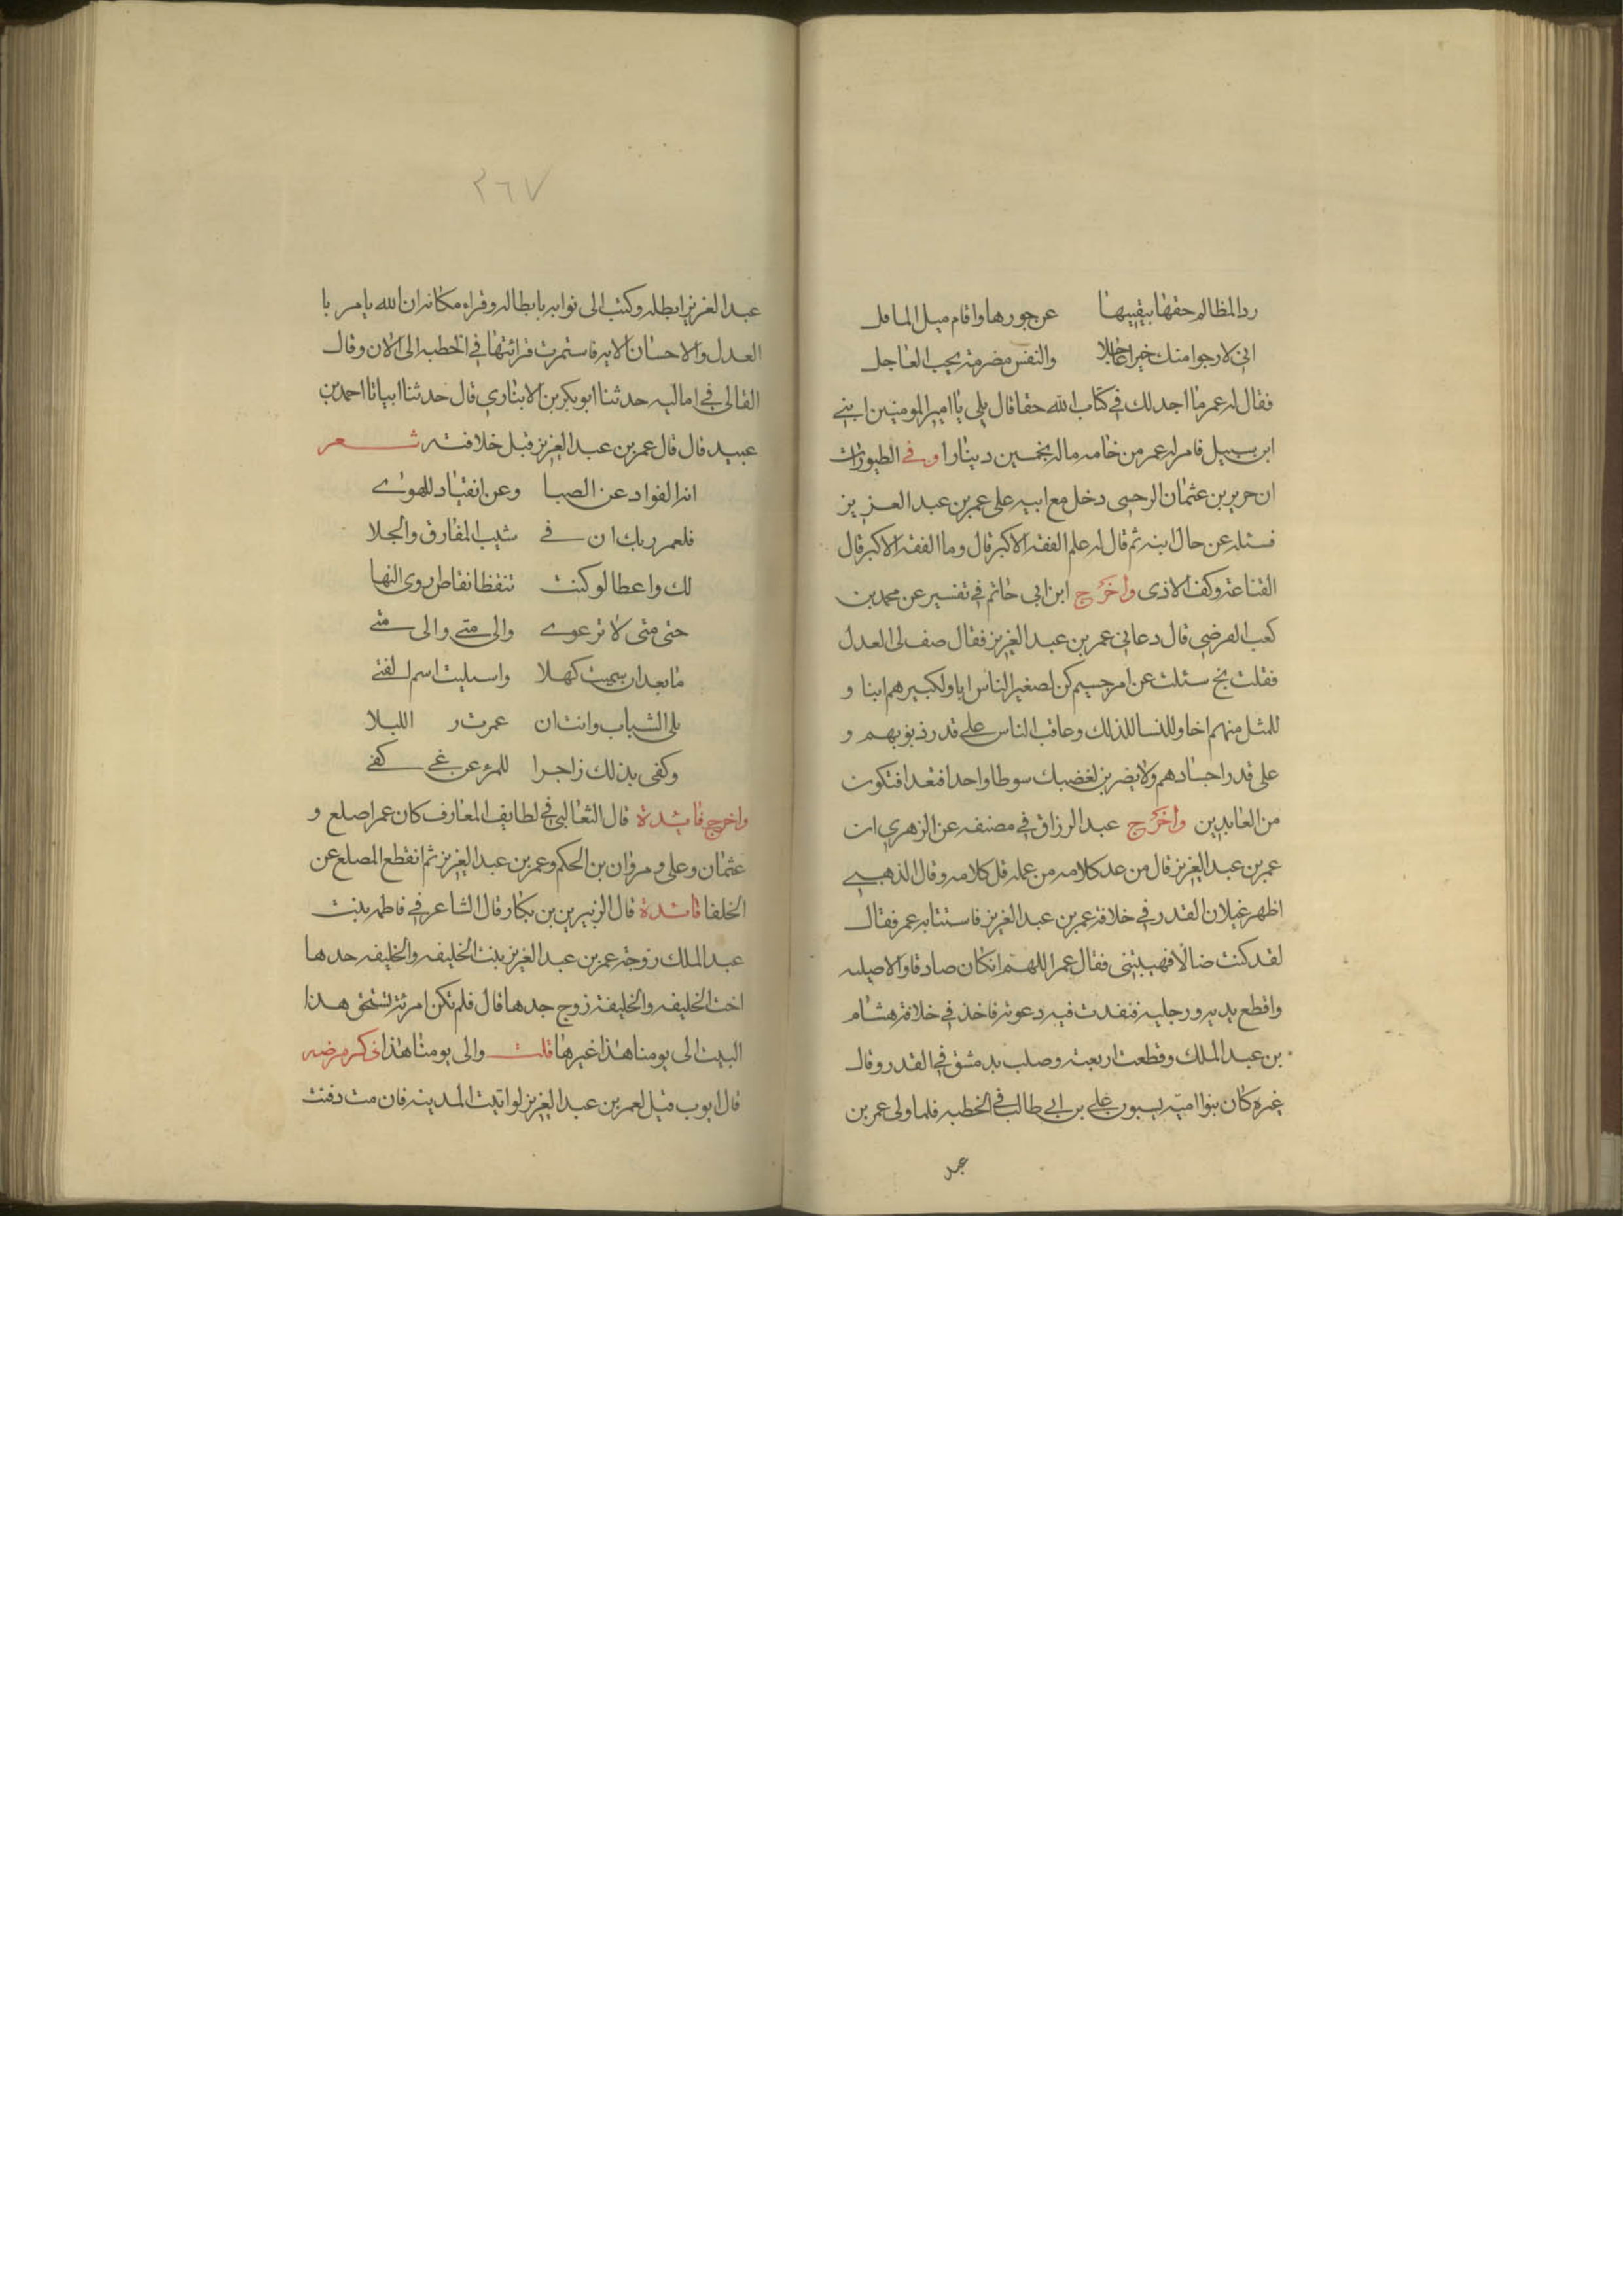 رد المظالم حقها بيقينها عن جورها واقام ميل المافل
انى لارجوا منك خيرا عاجلا والنفس مضرمة بحب العاجل
فقال له عمر ما اجد لك فى كتاب الله حقا قال بلى يا امير المومنين اننى
ابن سبيل فامر له عمر من خاصه ماله بخمسين دينارا وفى الطيوريات
ان حريز بن عثمان الرحبى دخل مع ابيه على عمر بن عبد العزيز
فسئله عن حال ابنه ثم قال له علم الفقه الاكبر قال وما الفقه الاكبر قال
القناعة وكف الاذى واخرج ابن ابى حاتم فى تفسير عن محمد بن
كعب القرضى قال دعانى عمر بن عبد العزيز فقال صف لى العدل
فقلت بخ سئلت عن امر جسيم كن لصغير الناس ابا ولكبيرهم ابنا و
للمثل منهم اخا وللنسا لذلك وعاقب الناس على قدر ذنوبهم و
على قدر اجسادهم ولا يضربن لغضبك سوطا واحدا فتعدا فتكون
من العابدين واخرج عبد الرزاق فى مصنفه عن الزهرى ان
عمر بن عبد العزيز قال من عد كلامه من عمله قل كلامه وقال الذهبى
اظهر غيلان القدر فى خلافة عمر بن عبد العزيز فاستتابه عمر فقال
لقد كنت ضالا فهديتنى فقال عمر اللهم انكان صادقا والا صلبه
واقطع يديه ورجليه فنفدت فيه دعوته فاخذ فى خلافة هشام
بن عبد الملك وقطعت اربعته وصلب بدمشق فى القدر وقال
غيره كان بنوا امية يسبون على بن ابى طالب فى الخطبه فلما ولى عمر بن
عبد
٣٦٧
عبد العزيز ابطله وكتب الى نوابه بابطاله وقراء مكانه ان الله يامر با
العدل والاحسان الايه فاستمرت قرائتها فى الخطبه الى الان وقال
القالى فى اماليه حدثنا ابو بكر بن الانبارى قال حدثنا ابياتا احمد بن
عبيد قال قال عمر بن عبد العزيز قبل خلافته شعر
انه الفواد عن الصبا وعن انقياد للهوى
فلعمر ربك ان فى شيب المفارق والجلا
لك واعظا لو كنت تتعظ اتعاظ ذوى النها
حتى متى لا ترعوى والى متى والى متى
ما بعد ان سميت كهلا واسبليت اسم الفتى
بلى الشباب وانت ان عمرت ر اللبلا
وكفى بذلك زاجرا للمرء عن غى كفى
واخرج فائدة قال الثعالبى فى لطايف المعارف كان عمر اصلع و
عثمان وعلى ومروان بن الحكم وعمر بن عبد العزيز ثم انقطع المصلع عن
الخلفا فائدة قال الزبير بن بن بكار قال الشاعر فى فاطمه بنت
عبد الملك زوجة عمر بن عبد العزيز بنت الخليفه والخليفه جدها
اخت الخليفه والخليفة زوج جدها قال فلم تكن امرئة تستحق هذا
البيت الى يومنا هذا غيرها قلت والى يومنا هذا ذكر مرضه
قال ايوب قيل لعمر بن عبد العزيز لو اتيت المدينه فان مت دفنت